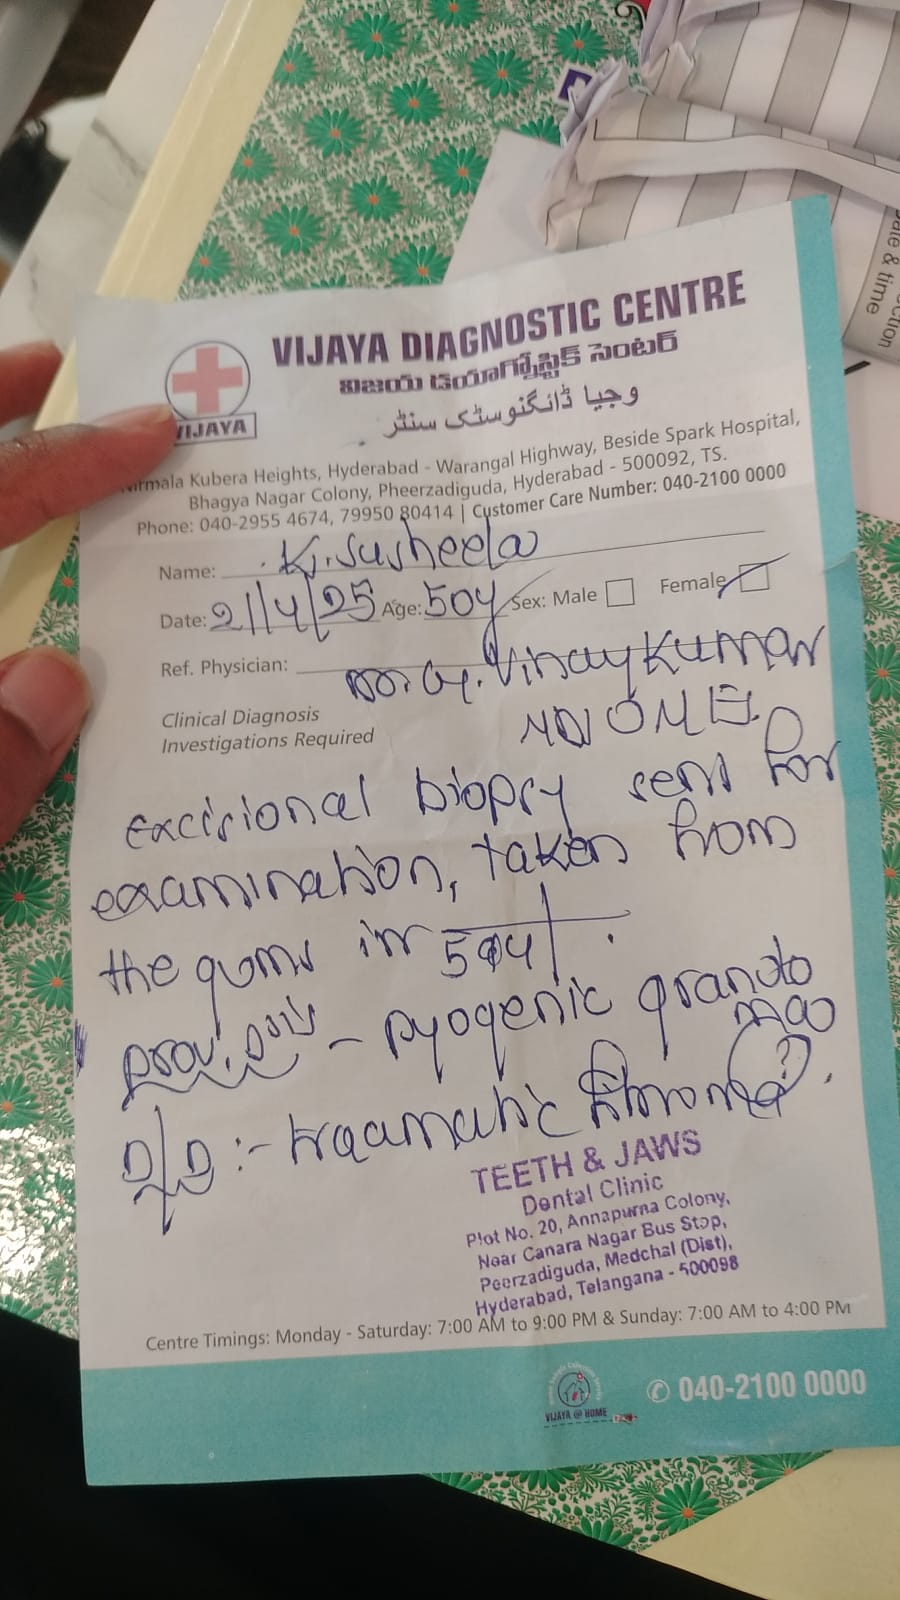 VIJAYA DIAGNOSTIC CENTRE
విజయ డయాగ్నోస్టిక్ సెంటర్
وجیا ڈائگنوسٹک سنٹر
VIJAYA
Nirmala Kubera Heights, Hyderabad - Warangal Highway, Beside Spark Hospital,
Bhagya Nagar Colony, Pheerzadiguda, Hyderabad - 500092, TS.
Phone: 040-2955 4674, 79950 80414 | Customer Care Number: 040-2100 0000
Name: K. Susheela
Date: 21/4/25 Age: 50y Sex: Male Female
Ref. Physician: Dr. G. Vinay Kumar
Clinical Diagnosis
Investigations Required
excisional biopsy sent for
examination, taken from
the gums in
prov. - pyogenic granulo
ma
D/D :- traumatic fibroma ?
TEETH & JAWS
Dental Clinic
Plot No. 20, Annapurna Colony,
Near Canara Nagar Bus Stop,
Peerzadiguda, Medchal (Dist),
Hyderabad, Telangana - 500098
Centre Timings: Monday - Saturday: 7:00 AM to 9:00 PM & Sunday: 7:00 AM to 4:00 PM
VIJAYA @ HOME
040-2100 0000
ate & time
ction